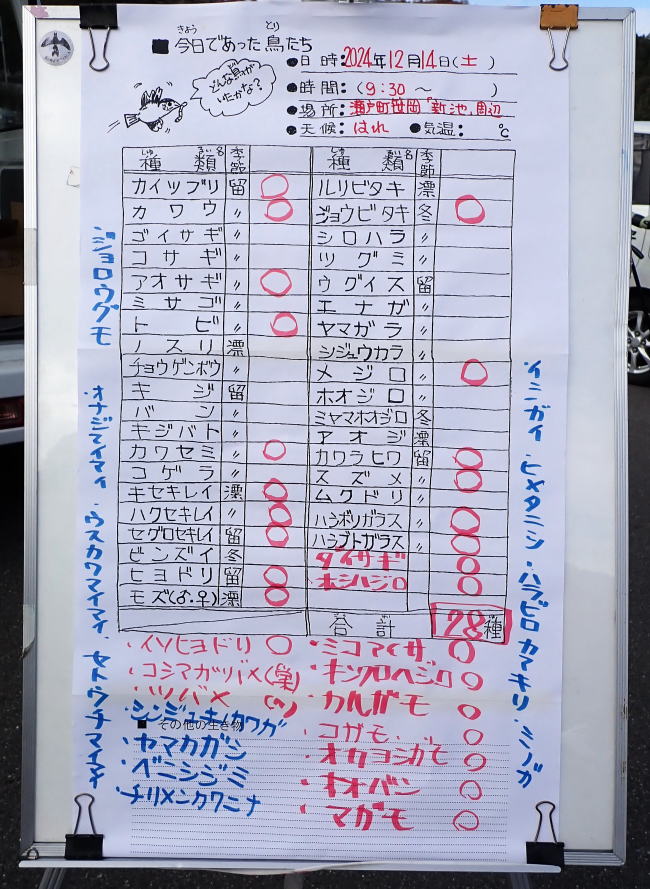 ■今日であった鳥たち
きょう とり
どんな鳥が
いたかな？
●日時:2024年12月14日(土)
●時間:(9:30～ )
●場所:瀬戸町笹岡「新池」周辺
●天候:はれ ●気温: ℃
種類名 季節
カイツブリ 留 ○
カワウ 〃 ○
ゴイサギ 〃
コサギ 〃
アオサギ 〃 ○
ミサゴ 〃
トビ 〃 ○
ノスリ 漂
チョウゲンボウ 〃
キジ 留
バン 〃
キジバト 〃
カワセミ 〃 ○
コゲラ 〃
キセキレイ 漂 ○
ハクセキレイ 〃 ○
セグロセキレイ 留 ○
ビンズイ 冬
ヒヨドリ 留 ○
モズ(♂・♀) 漂 ○
種類名 季節
ルリビタキ 漂
ジョウビタキ 冬 ○
シロハラ 〃
ツグミ 〃
ウグイス 留
エナガ 〃
ヤマガラ 〃
シジュウカラ 〃
メジロ 〃 ○
ホオジロ 〃
ミヤマホオジロ 冬
アオジ 漂
カワラヒワ 留 ○
スズメ 〃 ○
ムクドリ 〃
ハシボソガラス 〃 ○
ハシブトガラス 〃 ○
ダイサギ ○
ホシハジロ ○
合計 28種
・イソヒヨドリ ○
・コシアカツバメ(巣)
・ツバメ (〃)
・ミコアイサ ○
・キンクロハジロ ○
・カルガモ ○
・コガモ ○
・オカヨシガモ ○
・オオバン ○
・マガモ ○
■その他の生き物
・ヤマカガシ
・ベニシジミ
・チリメンカワニナ
・ジョロウグモ
・オナジマイマイ・ウスカワマイマイ・セトウチマイマイ
・イシガイ・ヒメタニシ・ハラビロカマキリ・ミノガ